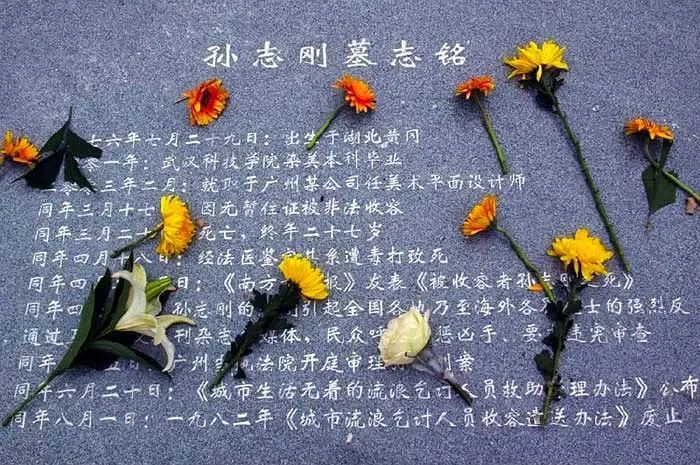 孙志刚墓志铭
七六年七月二十九日：出生于湖北黄冈
零一年：武汉科技学院染美本科毕业
二零零三年二月：就职于广州某公司任美术平面设计师
同年三月十七 因无暂住证被非法收容
同年三月二十 死亡，终年二十七岁
同年四月十八日：经法医鉴定其系遭毒打致死
同年四 日：《南方 报》发表《被收容者孙志刚之死》
同年四 孙志刚的 引起全国各地乃至海外各 士的强烈反
，通过 刊杂志 媒体，民众呼 惩凶手、要 违宪审查
同年 五日 广州 法院开庭审理 案
同年六月二十日：《城市生活无着的流浪乞讨人员救助管理办法》公布
同年八月一日：一九八二年《城市流浪乞讨人员收容遣送办法》废止